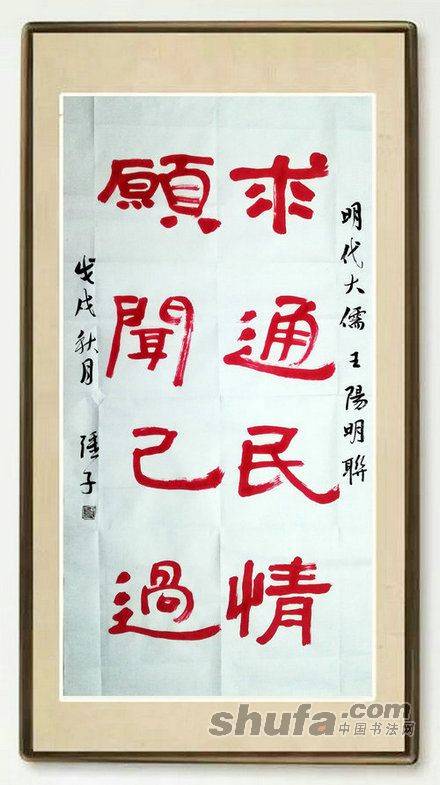 明代大儒王陽明聯
求通民情
願聞己過
戊戌秋月 陸子
shufa.com
中国书法网